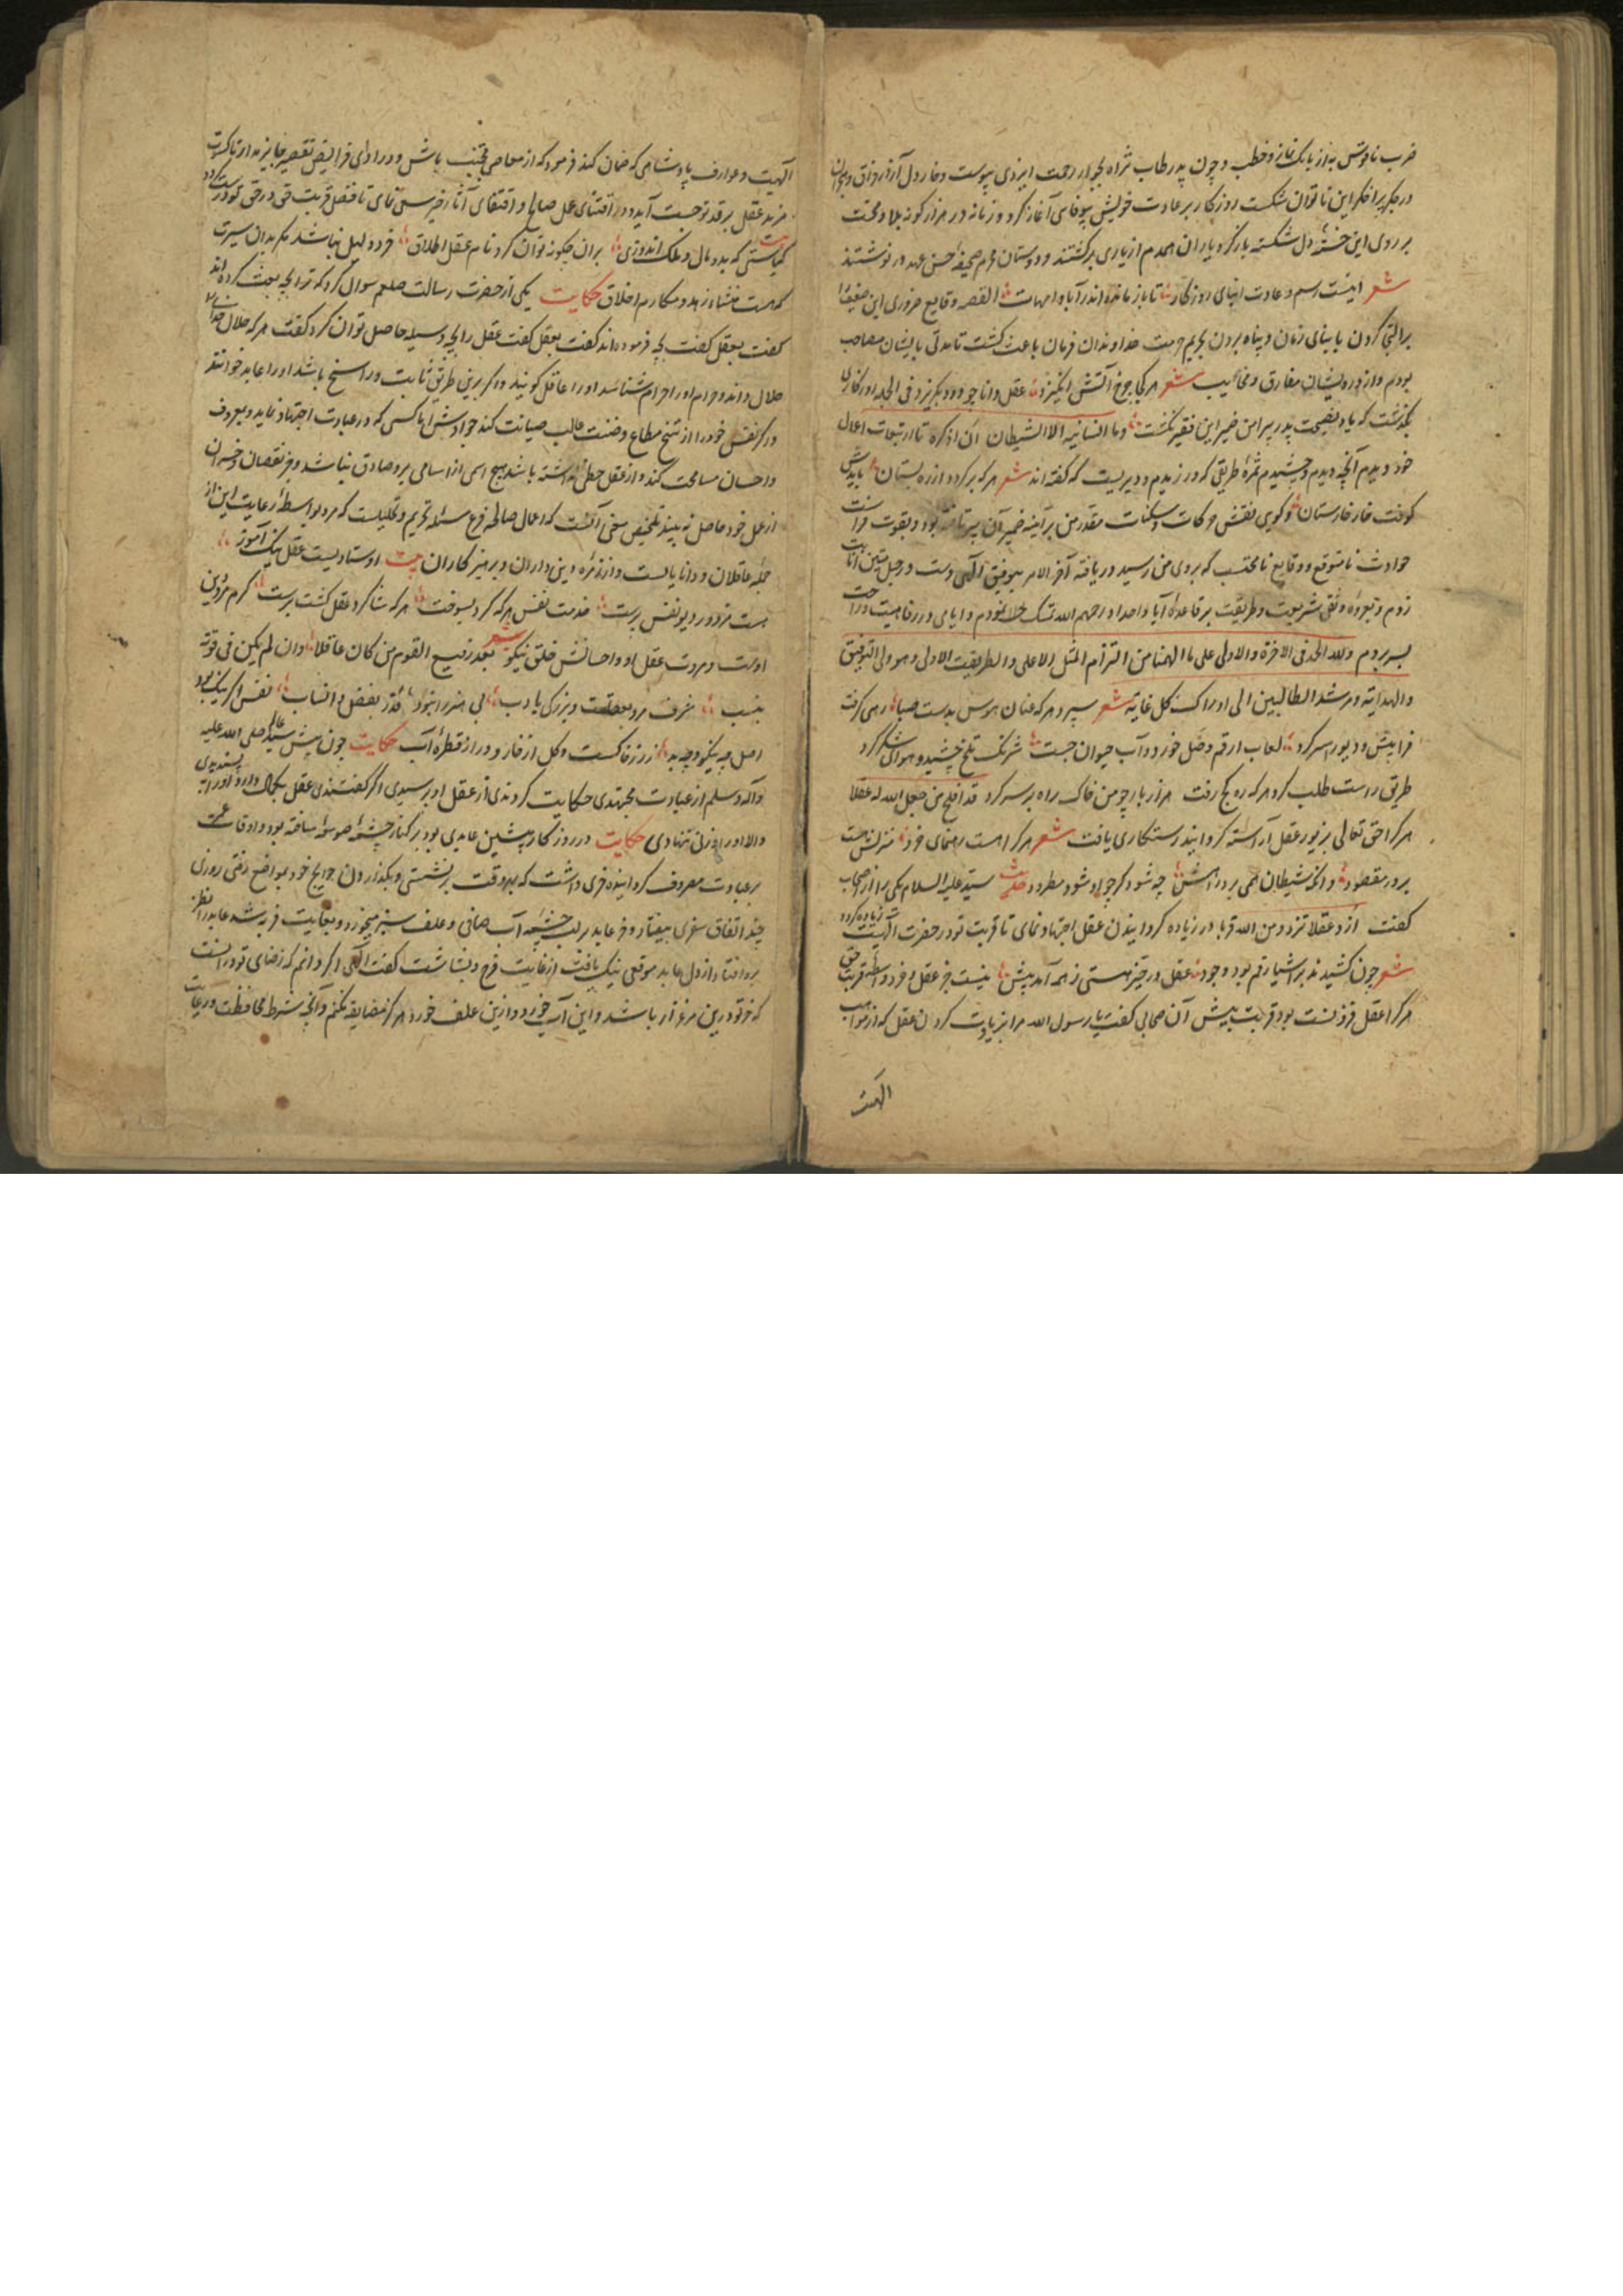 ضرب ناقوس به از بانک نماز و خطب و چون پدر طاب ثراه بجوار رحمت ایزدی پیوست و خار دل آزار فراق و هجران
در جگر پر افکر این ناتوان شکست روزکار بر عادت خویش بیوفایی آغاز کرد و زمانه در هزار کونه بلا و محنت
بر روی این خسته دل شکسته باز کرد یاران همدم از یاری برکشتند و دوستان محرم صحیفه حسن عهد در نوشتند
شعر اینست رسم و عادت ابنای روزکار تا باز مانده اند ز آبا و امهات القصه وقایع ضروری این ضعیف را
بر التجا کردن با بنای زمان و پناه بردن بحریم حرمت خداوندان فرمان باعث کشت تا مدتی با ایشان مصاحب
بودم و از درویشان مفارق و مجانب شعر هر کجا چرخ آتش انکیزد عقل دانا چو دود بکریزد فی الجمله روزکاری
بکذشت که یاد نصیحت پدر پیرامن ضمیر این فقیر نکشت و ما انسانیه الا الشیطان ان اذکره تا از تبعات اعمال
خود دیدم آنچه دیدم و چشیدم ثمره طریقی که ورزیدم و دیریست که کفته اند شعر هر که بر کردد از ره بستان بایدش
کوفت خار خارستان و کویی نقش حرکات و سکنات مقدر من بر آیینه ضمیر آن پیر تافته بود و بقوت فراست
حوادث نامتوقع و وقایع نامحتسب که بروی من رسید دریافته آخر الامر بتوفیق الهی دست در حبل متین انابت
زدم و بعروه وثقی شریعت و طریقت بر قاعده آبا و اجداد رحمهم الله تمسک نمودم و ایامی در رفاهیت و راحت
بسر بردم و لله الحمد فی الاخرة و الاولی علی ما الهمنا من التزام المثل الاعلی و الطریقت الاولی و هو ولی التوفیق
و الهدایه و مرشد الطالبین الی ادراک کل غایه شعر سپرد هر که عنان هوس بدست صبا رهی کرفت
فرا پیش و دیو رهبر کرد لعاب ارقم وصل خورد و آب حیوان جست شرنک تلخ چشید و هوای شکر کرد
طریق راست طلب کرد هر که ره کج رفت هزار بار چو من خاک راه بر سر کرد قد افلح من جعل الله له عقلا
هر کرا حق تعالی بزیور عقل آراسته کردانید رستکاری یافت شعر هر کرا هست رهنمای خرد منزلش هست
بر در مقصود وانکه شیطان همی برد راهش چه شود کر چو او شود مطرود حدیث سید علیه السلام یکی را از اصحاب
کفت ازدد عقلا تزدد من الله قربا در زیاده کردانیدن عقل اجتهاد نمای تا قربت تو در حضرت الهیت زیاده کردد
شعر چون کشیدند بر اشیا رقم بود و وجود عقل در حیز هستی ز همه آمد پیش نیست جز عقل و خرد واسطه قربت حق
هر کرا عقل فزونست بود قربت بیش آن صحابی کفت یا رسول الله مرا بزیادت کردن عقل که از مواهب
الهیت
الهیت و عوارف پادشاهی که ضمان کند فرمود که از معاصی مجتنب باش و در ادای فرایض تقصیر جایز مدار تا کسوت
مزید عقل بر قد تو چست آید و در اقتنای عمل صالح و اقتفای آثار خیر سعی نمای تا فضل قربت حق در حق تو درست کردد
بیت کیاستی که بدو مال و ملک اندوزی بران چکونه توان کرد نام عقل اطلاق خرد دلیل نباشد مکر بدان سیرت
که هست منشاء زهد و مکارم اخلاق حکایت یکی از حضرت رسالت صلعم سوال کرد که ترا بچه مبعث کرده اند
کفت بعقل کفت بچه فرموده اند کفت بعقل کفت عقل را بچه وسیله حاصل توان کرد کفت هر که حلال خدایرا
حلال داند و حرام او را حرام شناسد او را عاقل کویند و اکر برین طریق ثابت و راسخ باشد او را عابد خوانند
و اکر نفس خود را از شح مطاع و ضنت غالب صیانت کند جوادش اما کسی که در عبادت اجتهاد نماید و بمعروف
و احسان مسامحت کند و از عقل حظی نداشته باشد هیچ اسم ازان اسامی برو صادق نباشد و جز نقصان و خسران
از عمل خود حاصل نه بیند تلخیص سخن آنست که اعمال صالحه فرع مسئله تحریم و تحلیلست که مرد بواسطه رعایت این از
جمله عاقلان و دانایانست و از زمره دین داران و پرهیز کاران بیت اوستادیست عقل نیک آموز
هست مزدور دیو نفس پرست خدمت نفس هر که کرد بسوخت هر که شاکرد عقل کشت برست کرم مرد دین
اوست و مروت عقل او و احسانش خلق نیکو شعر یعد رفیع القوم من کان عاقلا و ان لم یکن فی قومه
بنسیب شرف مرد بعقلست و بزرکی بادب بی هنر را نبود قدر بفضل و انساب نفس اکر نیک بود
اصل چه نیکو و چه بد زر ز خاکست و کل از خار و در از قطره آب حکایت چون پیش سید عالم صلی الله علیه
و آله و سلم از عبادت مجتهدی حکایت کردندی از عقل او پرسیدی اکر کفتندی عقل بکمال دارد او را پسندیدی
و الا او را وزنی ننهادی حکایت در روزکار پیشین عابدی بود بر کنار چشمه صومعه ساخته بود و اوقات عمر
بر عبادت مصروف کردانیده خری داشت که بهر وقت بر نشستی و بکذاردن حوایج خود بمواضع رفتی روزی
چند اتفاق سفری نیفتاد و خر عابد بر لب چشمه آب صافی و علف سبز میخورد و بغایت فربه شد عابد را نظر
برو افتاد و از دل عابد موقعی نیک یافت از غایت فرح و بشاشت کفت الهی اکر دانم که رضای تو در آنست
که خر تو درین مرغزار باشد و این آب خورد و ازین علف خورد هرکز مضایقه نکنم و آنچه شرط محافظت و رعایت